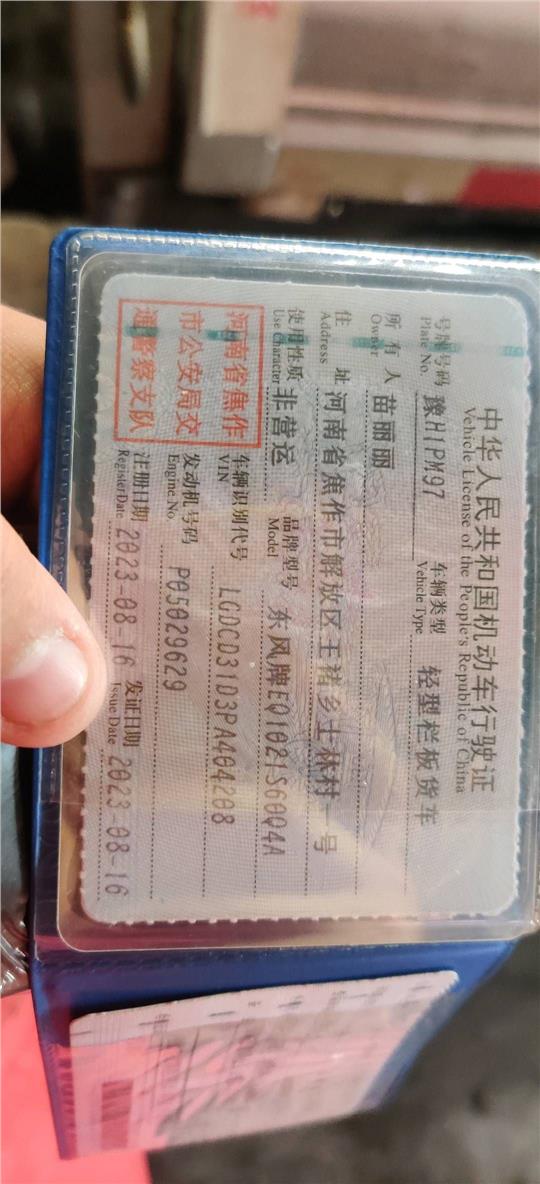 中华人民共和国机动车行驶证
Vehicle License of the People's Republic of China
号牌号码 豫H1PM97 车辆类型 轻型栏板货车
Plate No. Vehicle Type
所有人 苗丽丽
Owner
住址 河南省焦作市解放区王褚乡士林村一号
Address
使用性质 非营运 品牌型号 东风牌EQ1021S60Q4A
Use Character Model
河南省焦作
市公安局交
通警察支队
车辆识别代号 LGDCD31D3PA404208
VIN
发动机号码 P05029629
Engine No.
注册日期 2023-08-16 发证日期 2023-08-16
Register Date Issue Date